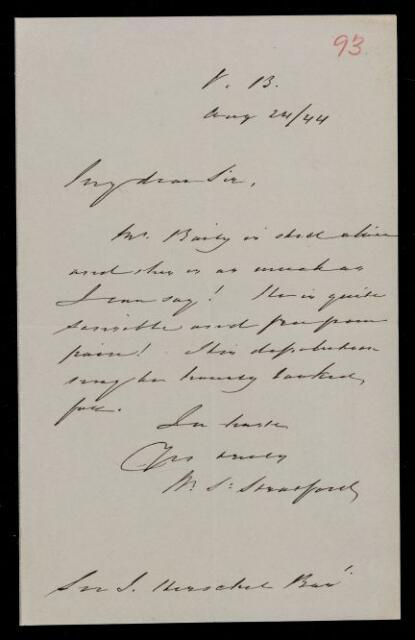 93
V. B.
Aug 24/44
My dear Sir,
Mr. Baily is still alive
and this is as much as
I can say! He is quite
sensible and free from
pain! His dissolution
may be hourly looked
for.
In haste
Yrs truly
W. S. Stratford
Sir J. Herschel Bart